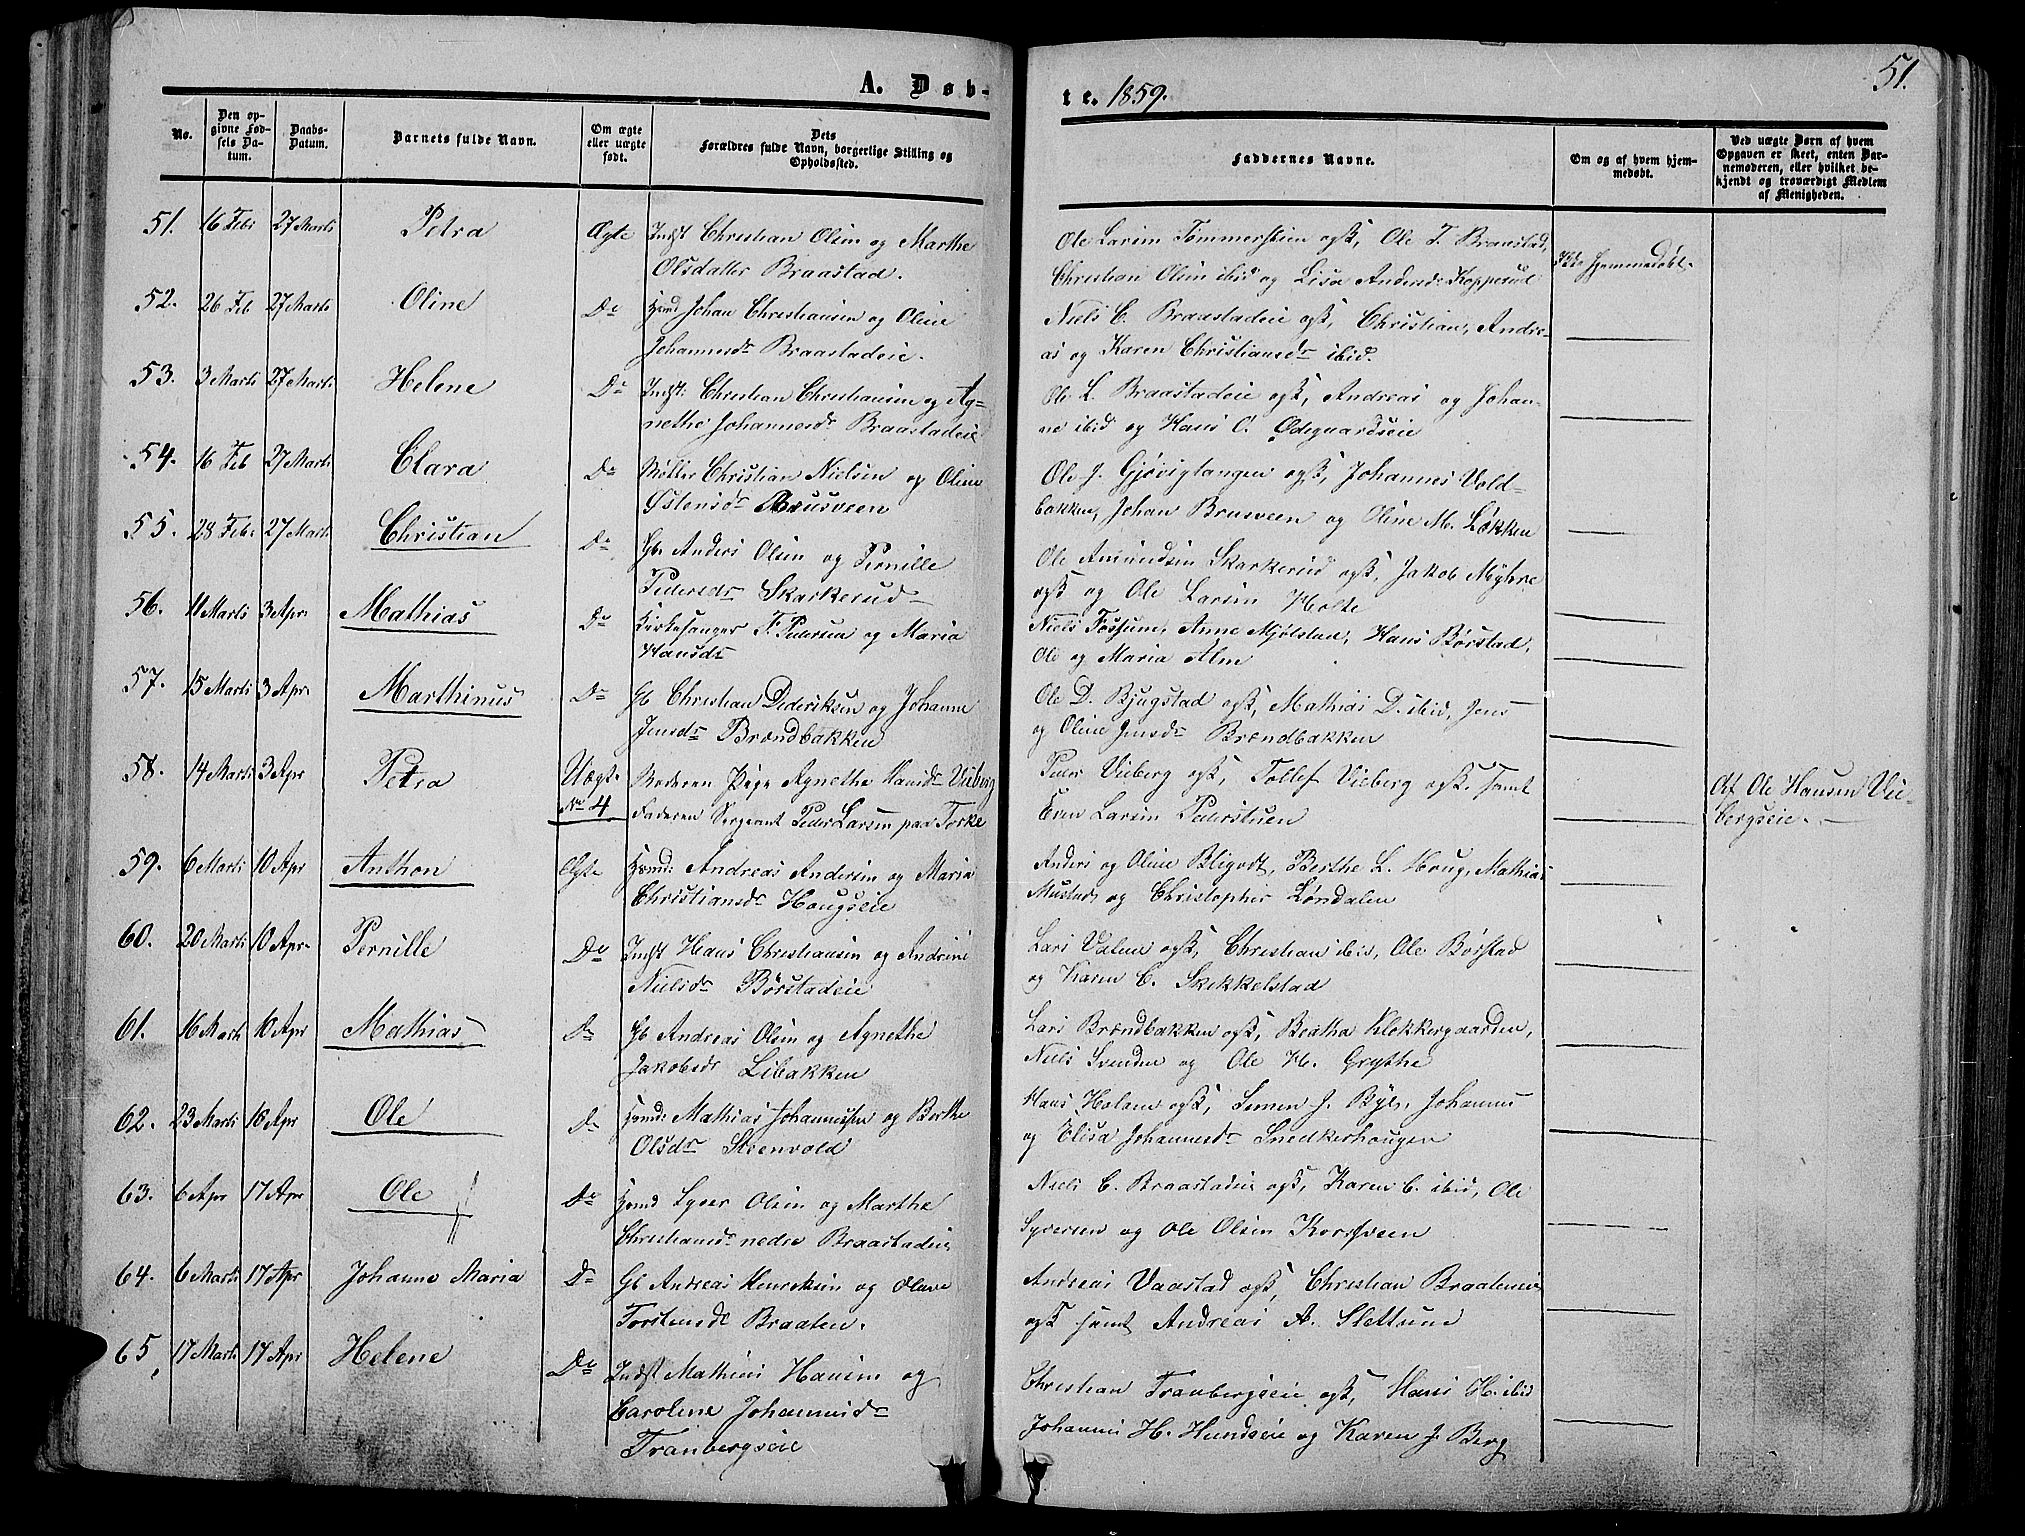 51.
A. Døb-
te. 1859.
No.
Den op-
givne Fød-
sels Da-
tum.
Daabs-
Datum.
Barnets fulde Navn.
Om ægte
eller uægte
født.
Dets
Forældres fulde Navn, borgerlige Stilling og
Opholdssted.
Faddernes Navne.
Om og af hvem hjem-
medøbt.
Ved uægte Børn af hvem
Opgaven er skeet, enten Bar-
nemoderen, eller hvilket be-
kjendt og troværdigt Medlem
af Menigheden.
51. 16 Feb 27 Marts Petra Ægte Indst Christian Olsen og Marthe
Olsdatter Braastad.
Ole Larsen Tømmerstien ogsk, Ole T. Braastad,
Christian Olsen ibid og Lisa Andersd: Kopperud
hjemmedøbt.
52. 26 Feb 27 Marts Oline Do Hmd Johan Christiansen og Oline
Johannesdr Braastadeie.
Niels C. Braastadeie ogsk, Christian, Andre-
as og Karen Christiansdr ibid.
53. 3 Marts 27 Marts Helene Do Indst: Christian Christiansen og Ag-
nethe Johannesdr Braastadeie
Ole L. Braastadeie ogsk, Andreas og Johan-
ne ibid og Hans C. Ødegaardseie
54. 16 Feb 27 Marts Clara Do Møller Christian Nielsen og Oline
Østensdr Bruusveen
Ole J. Gjøvigtangen ogsk, Johannes Vold-
bakken, Johan Brusveen og Oline M. Løkken
55. 28 Feb. 27 Marts Christian Do Gb. Anders Olsen og Pernille
Pedersdr Skarkerud
Ole Amundsen Skarkerud ogsk, Jakob Myhre
ogsk og Ole Larsen Holte
56. 11 Marts 3 Apr. Mathias Do Kirkesanger F. Pedersen og Maria
Hansdr
Niels Fossum, Anne Mjølstad, Hans Børstad,
Ole og Maria Alm
57. 15 Marts 3 Apr. Marthinus Do Gb Christian Dideriksen og Johanne
Jensdr Brændbakken
Ole D. Bjugstad ogsk, Mathias D. ibid, Jens
og Oline Jensdr Brændbakken
58. 14 Marts 3 Apr Petra Uægte
No 4
Moderen Pige Agnethe Hansdr Vieberg
Faderen Sergeant Peder Larsen paa Torke
Peder Vieberg ogsk, Tollef Vieberg ogsk. samt
Even Larsen Pederstuen
Af Ole Hansen Vie-
bergseie.
59. 6 Marts 10 Apr Anthon Ægte Hmd: Andreas Andersen og Maria
Christiansdr Hougseie
Anders og Oline Bligodt, Berthe L. Houg, Mathias
Mustad og Christopher Løndalen
60. 20 Marts 10 Apr. Pernille Do Indst Hans Christiansen og Andrine
Nielsdr Børstadeie
Lars Valen ogsk, Christian ibid, Ole Børstad
og Karen C. Skikkelstad
61. 16 Marts 10 Apr Mathias Do Gb Andreas Olsen og Agnethe
Jakobsdr Libakken
Lars Brændbakken ogsk, Beatha Klokkergaarden,
Niels Svenden og Ole H. Grythe
62. 23 Marts 10 Apr Ole Do Hmd: Mathias Johannessen og Berthe
Olsdr Steenvold
Hans Holam ogsk, Simen J. Bye, Johannes
og Elisa Johannesdr Snedkerhaugen
63. 6 Apr 17 Apr Ole Do Hmd Syver Olsen og Marthe
Christiansdr nedre Braastadeie
Niels C. Braastadeie ogsk, Karen C. ibid, Ole
Syversen og Ole Olsen Korsveen
64. 6 Marts 17 Apr Johanne Maria Do Gb Andreas Henriksen og Olave
Torstensdr Braaten.
Andreas Vaastad ogsk, Christian Braateneie
ogsk samt Andreas A. Slettune
65. 17 Marts 17 Apr Helene Do Indst Mathias Hansen og
Caroline Johannesdr
Tranbergseie
Christian Tranbergseie ogsk, Hans H. ibid
Johannes H. Hundseie og Karen J. Berg